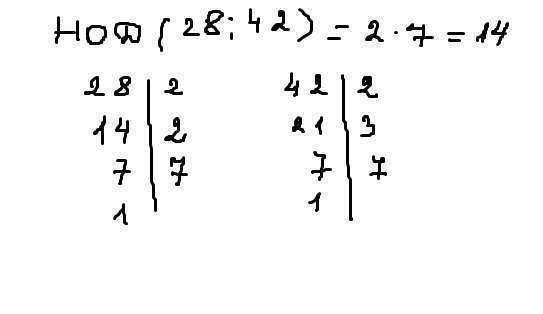 НОД (28; 42) = 2 · 7 = 14
28 | 2 42 | 2
14 | 2 21 | 3
7 | 7 7 | 7
1 | 1 |